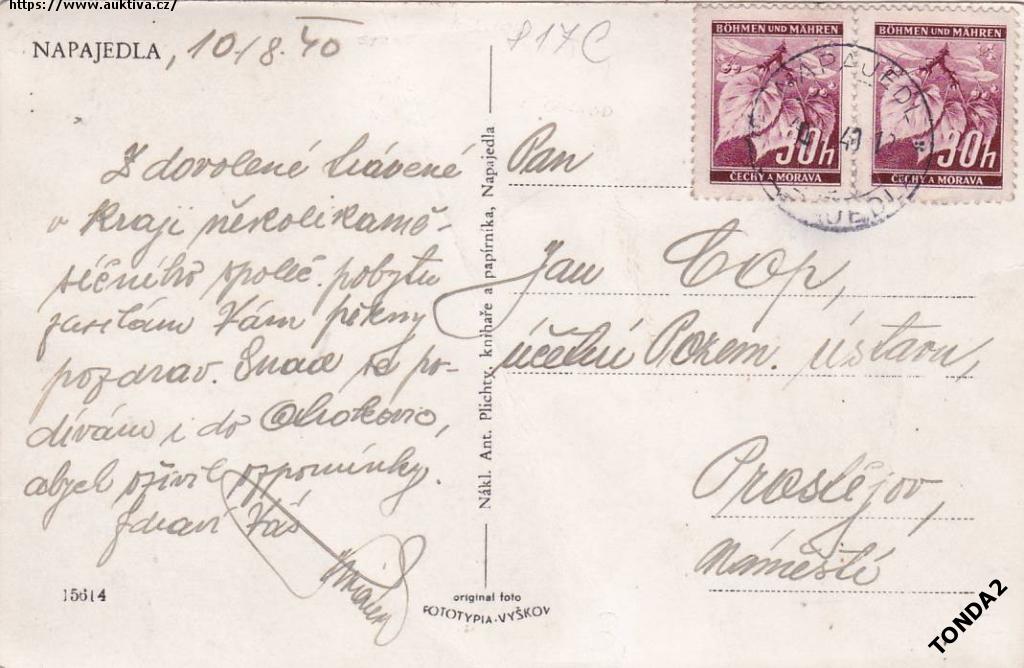 https://www.auktiva.cz/
NAPAJEDLA, 10/8. 40
817C
Z dovolené trávené
v kraji několikamě-
síčního společ. pobytu
zasílám Vám pěkný
pozdrav. Snad se po-
dívám i do Otrokovic,
abych oživil vzpomínky.
Zdraví Váš
15614
Nákl. Ant. Plichty, knihaře a papírníka, Napajedla
original foto
FOTOTYPIA-VYŠKOV
BÖHMEN UND MÄHREN
30h
ČECHY A MORAVA
BÖHMEN UND MÄHREN
30h
ČECHY A MORAVA
Pan
Jan Čop,
účetní Pozem. ústavu,
Prostějov,
Náměstí
TONDA2